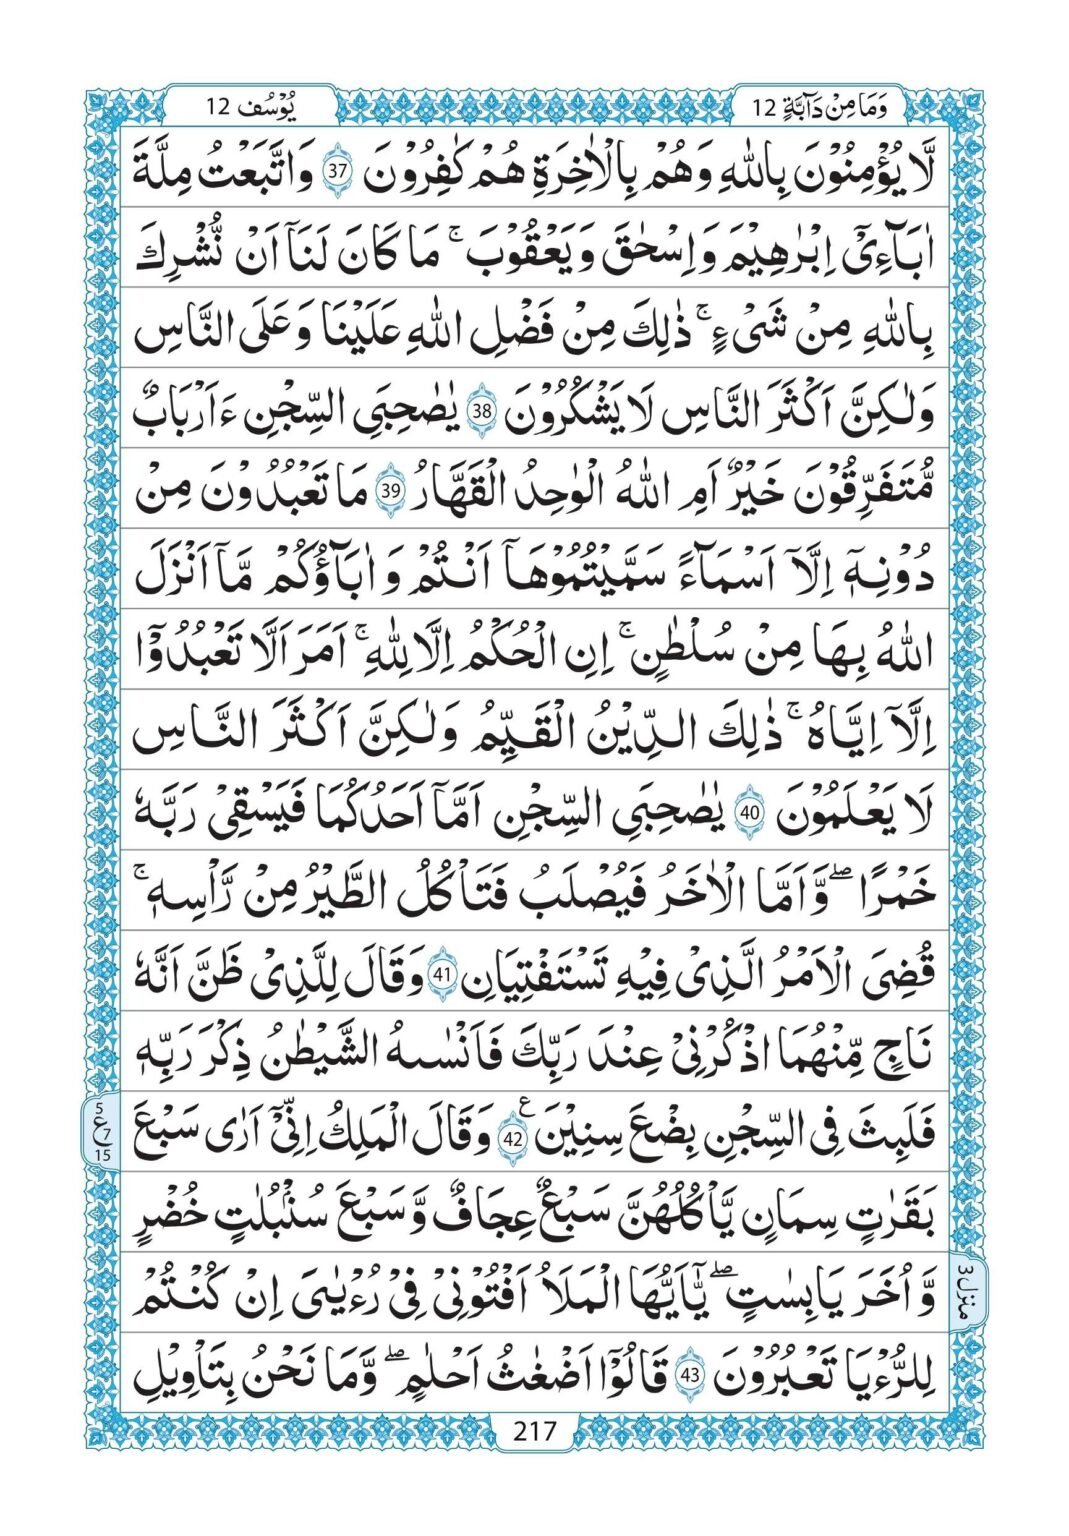 وَمَا مِنْ دَآبَّةٍ 12
يُوْسُف 12
لَّا يُؤْمِنُوْنَ بِاللّٰهِ وَهُمْ بِالْاٰخِرَةِ هُمْ كٰفِرُوْنَ 37 وَاتَّبَعْتُ مِلَّةَ
اٰبَآءِیْۤ اِبْرٰهِيْمَ وَاِسْحٰقَ وَيَعْقُوْبَ ۚ مَا كَانَ لَنَاۤ اَنْ نُّشْرِكَ
بِاللّٰهِ مِنْ شَیْءٍ ۚ ذٰلِكَ مِنْ فَضْلِ اللّٰهِ عَلَيْنَا وَعَلَى النَّاسِ
وَلٰكِنَّ اَكْثَرَ النَّاسِ لَا يَشْكُرُوْنَ 38 يٰصَاحِبَیِ السِّجْنِ ءَاَرْبَابٌ
مُّتَفَرِّقُوْنَ خَيْرٌ اَمِ اللّٰهُ الْوٰحِدُ الْقَهَّارُ 39 مَا تَعْبُدُوْنَ مِنْ
دُوْنِهٖۤ اِلَّاۤ اَسْمَآءً سَمَّيْتُمُوْهَاۤ اَنْتُمْ وَ اٰبَآؤُكُمْ مَّاۤ اَنْزَلَ
اللّٰهُ بِهَا مِنْ سُلْطٰنٍ ۚ اِنِ الْحُكْمُ اِلَّا لِلّٰهِ ۚ اَمَرَ اَلَّا تَعْبُدُوْۤا
اِلَّاۤ اِيَّاهُ ۚ ذٰلِكَ الدِّيْنُ الْقَيِّمُ وَلٰكِنَّ اَكْثَرَ النَّاسِ
لَا يَعْلَمُوْنَ 40 يٰصَاحِبَیِ السِّجْنِ اَمَّاۤ اَحَدُكُمَا فَيَسْقِیْ رَبَّهٗ
خَمْرًا ۖ وَّاَمَّا الْاٰخَرُ فَيُصْلَبُ فَتَاْكُلُ الطَّيْرُ مِنْ رَّاْسِهٖ ۚ
قُضِیَ الْاَمْرُ الَّذِیْ فِيْهِ تَسْتَفْتِيَانِ 41 وَقَالَ لِلَّذِیْ ظَنَّ اَنَّهٗ
نَاجٍ مِّنْهُمَا اذْكُرْنِیْ عِنْدَ رَبِّكَ فَاَنْسٰىهُ الشَّيْطٰنُ ذِكْرَ رَبِّهٖ
فَلَبِثَ فِی السِّجْنِ بِضْعَ سِنِيْنَ ع 42 وَقَالَ الْمَلِكُ اِنِّیْۤ اَرٰى سَبْعَ
5
ع 7
15
بَقَرٰتٍ سِمَانٍ يَّاْكُلُهُنَّ سَبْعٌ عِجَافٌ وَّسَبْعَ سُنْۢبُلٰتٍ خُضْرٍ
وَّ اُخَرَ يٰبِسٰتٍ ۖ يٰۤاَيُّهَا الْمَلَاُ اَفْتُوْنِیْ فِیْ رُءْيَایَ اِنْ كُنْتُمْ
منزل 3
لِلرُّءْيَا تَعْبُرُوْنَ 43 قَالُوْۤا اَضْغٰثُ اَحْلٰمٍ ۖ وَّمَا نَحْنُ بِتَاْوِيْلِ
217